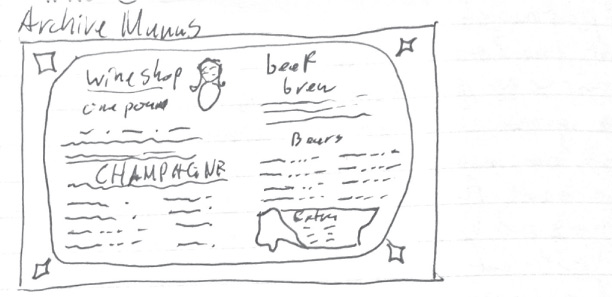 Archive Munus
wine shop
one pound
CHAMPAGNE
beef
brew
Beers
Extras